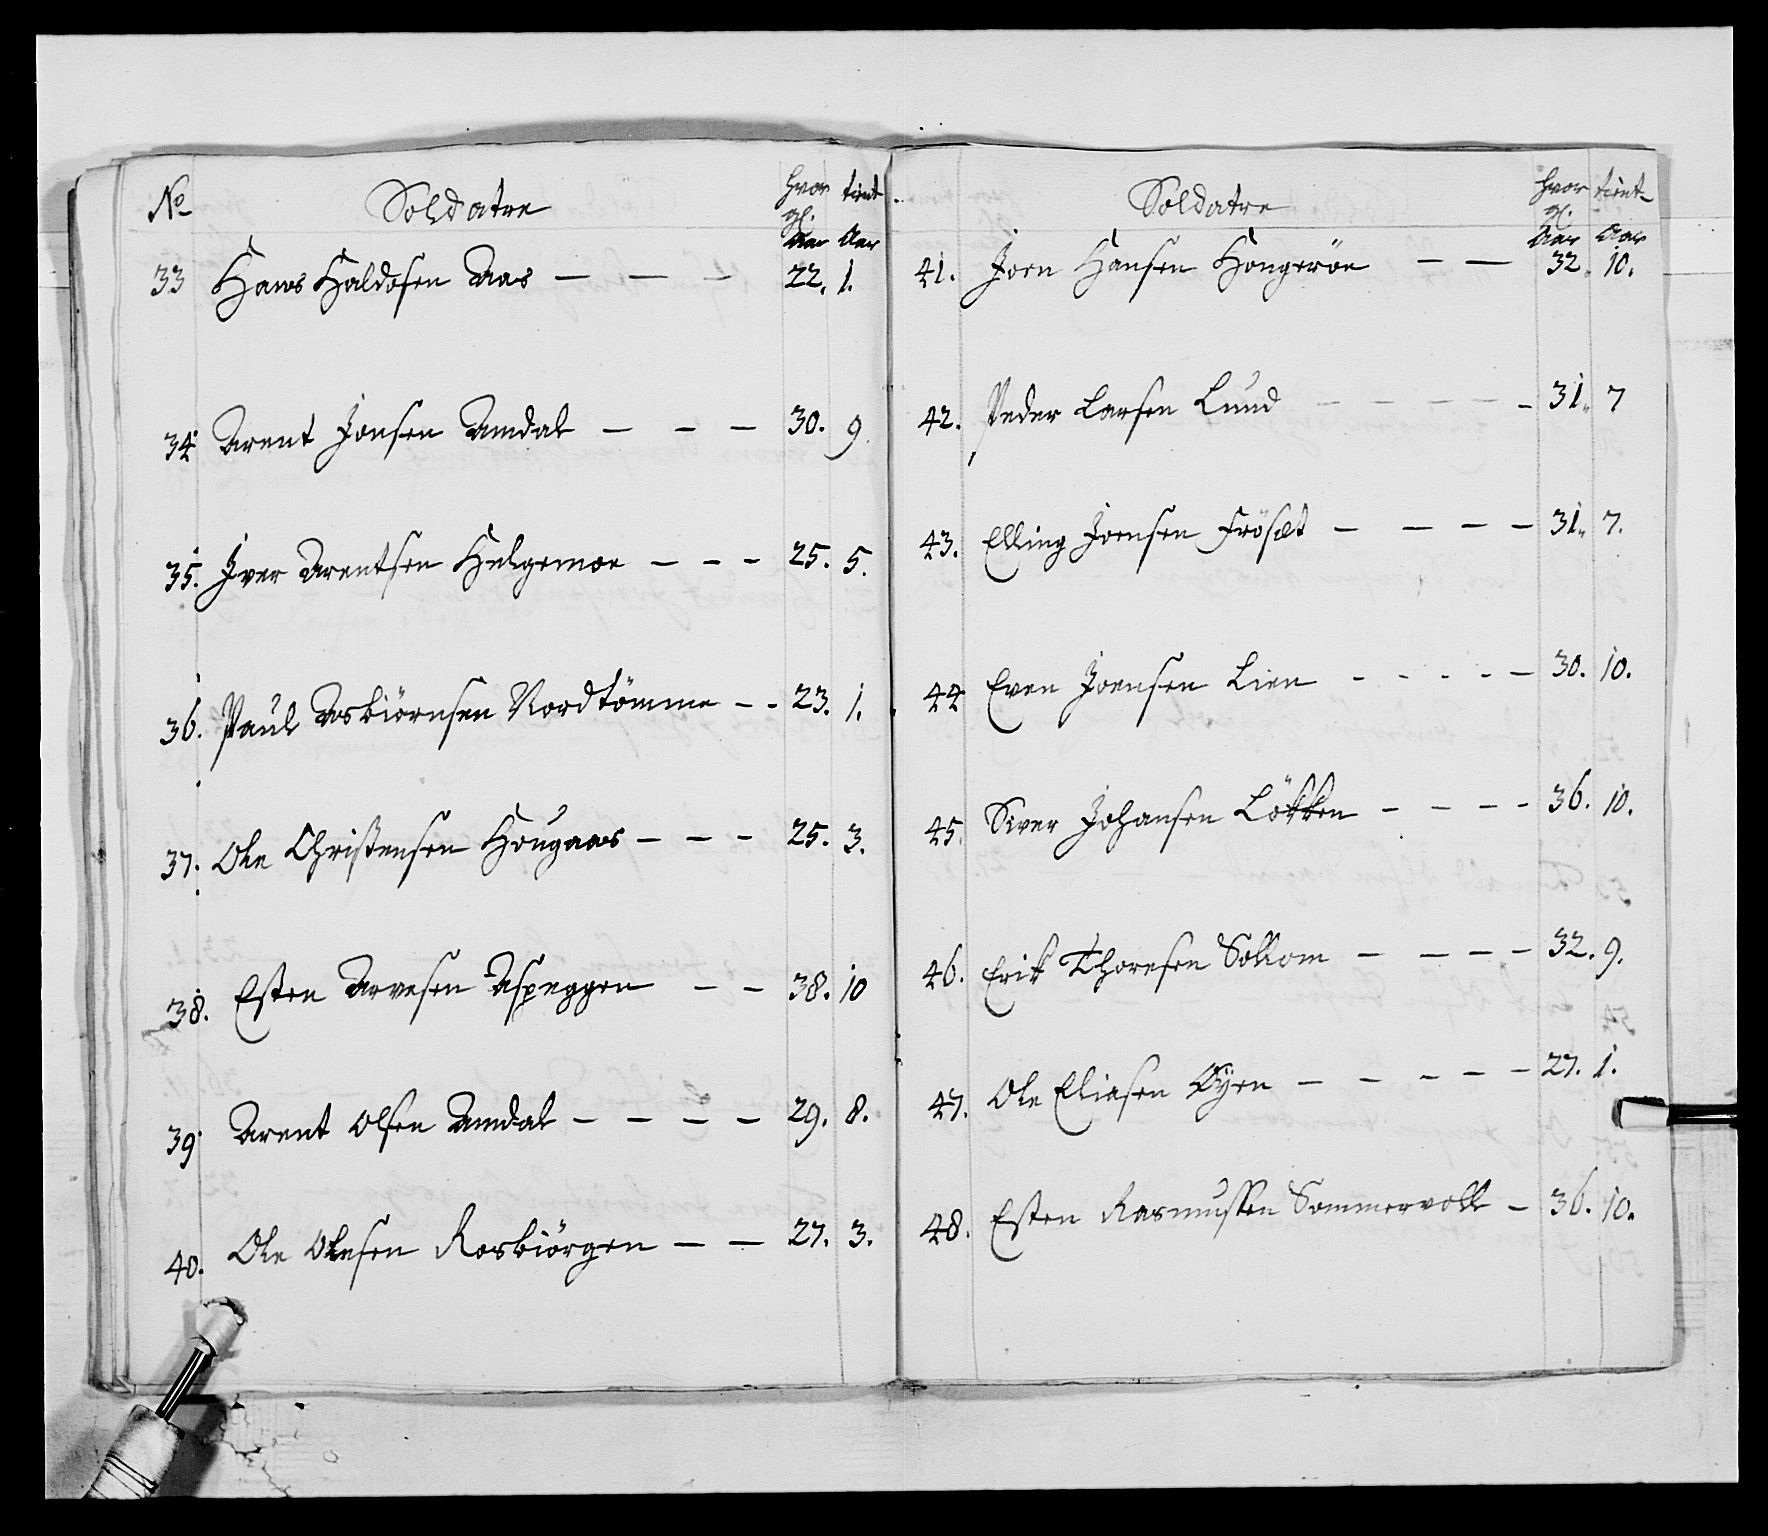 No Soldatre hvor gl. Aar tient Aar
33 Hans Haldosen Aas — — — 22. 1.
34 Arent Jonsen Amdal — — — 30. 9
35. Iver Arentsen Helgemoe — — — 25. 5.
36. Paul Asbiörnsen Nordtömme — — 23. 1.
37. Ole Christensen Hougaas — — — 25. 3.
38. Esten Arvesen Aspeggen — — 38. 10
39 Arent Olsen Amdal — — — — 29. 8.
40. Ole Olesen Rosbiörgen — — 27. 3.
Soldatre hvor gl. Aar tient Aar
41. Joen Hansen Hongeröe — — 32. 10.
42. Peder Larsen Lund — — — — — 31. 7
43. Elling Joensen Fröset — — — — 31. 7.
44 Even Joensen Lien — — — — — 30. 10.
45. Siver Johansen Lökken — — — — 36. 10.
46. Erik Thoresen Solkom — — — — 32. 9.
47. Ole Eliasen Öyen — — — — — 27. 1.
48. Esten Rasmussen Sommervold — 36. 10.